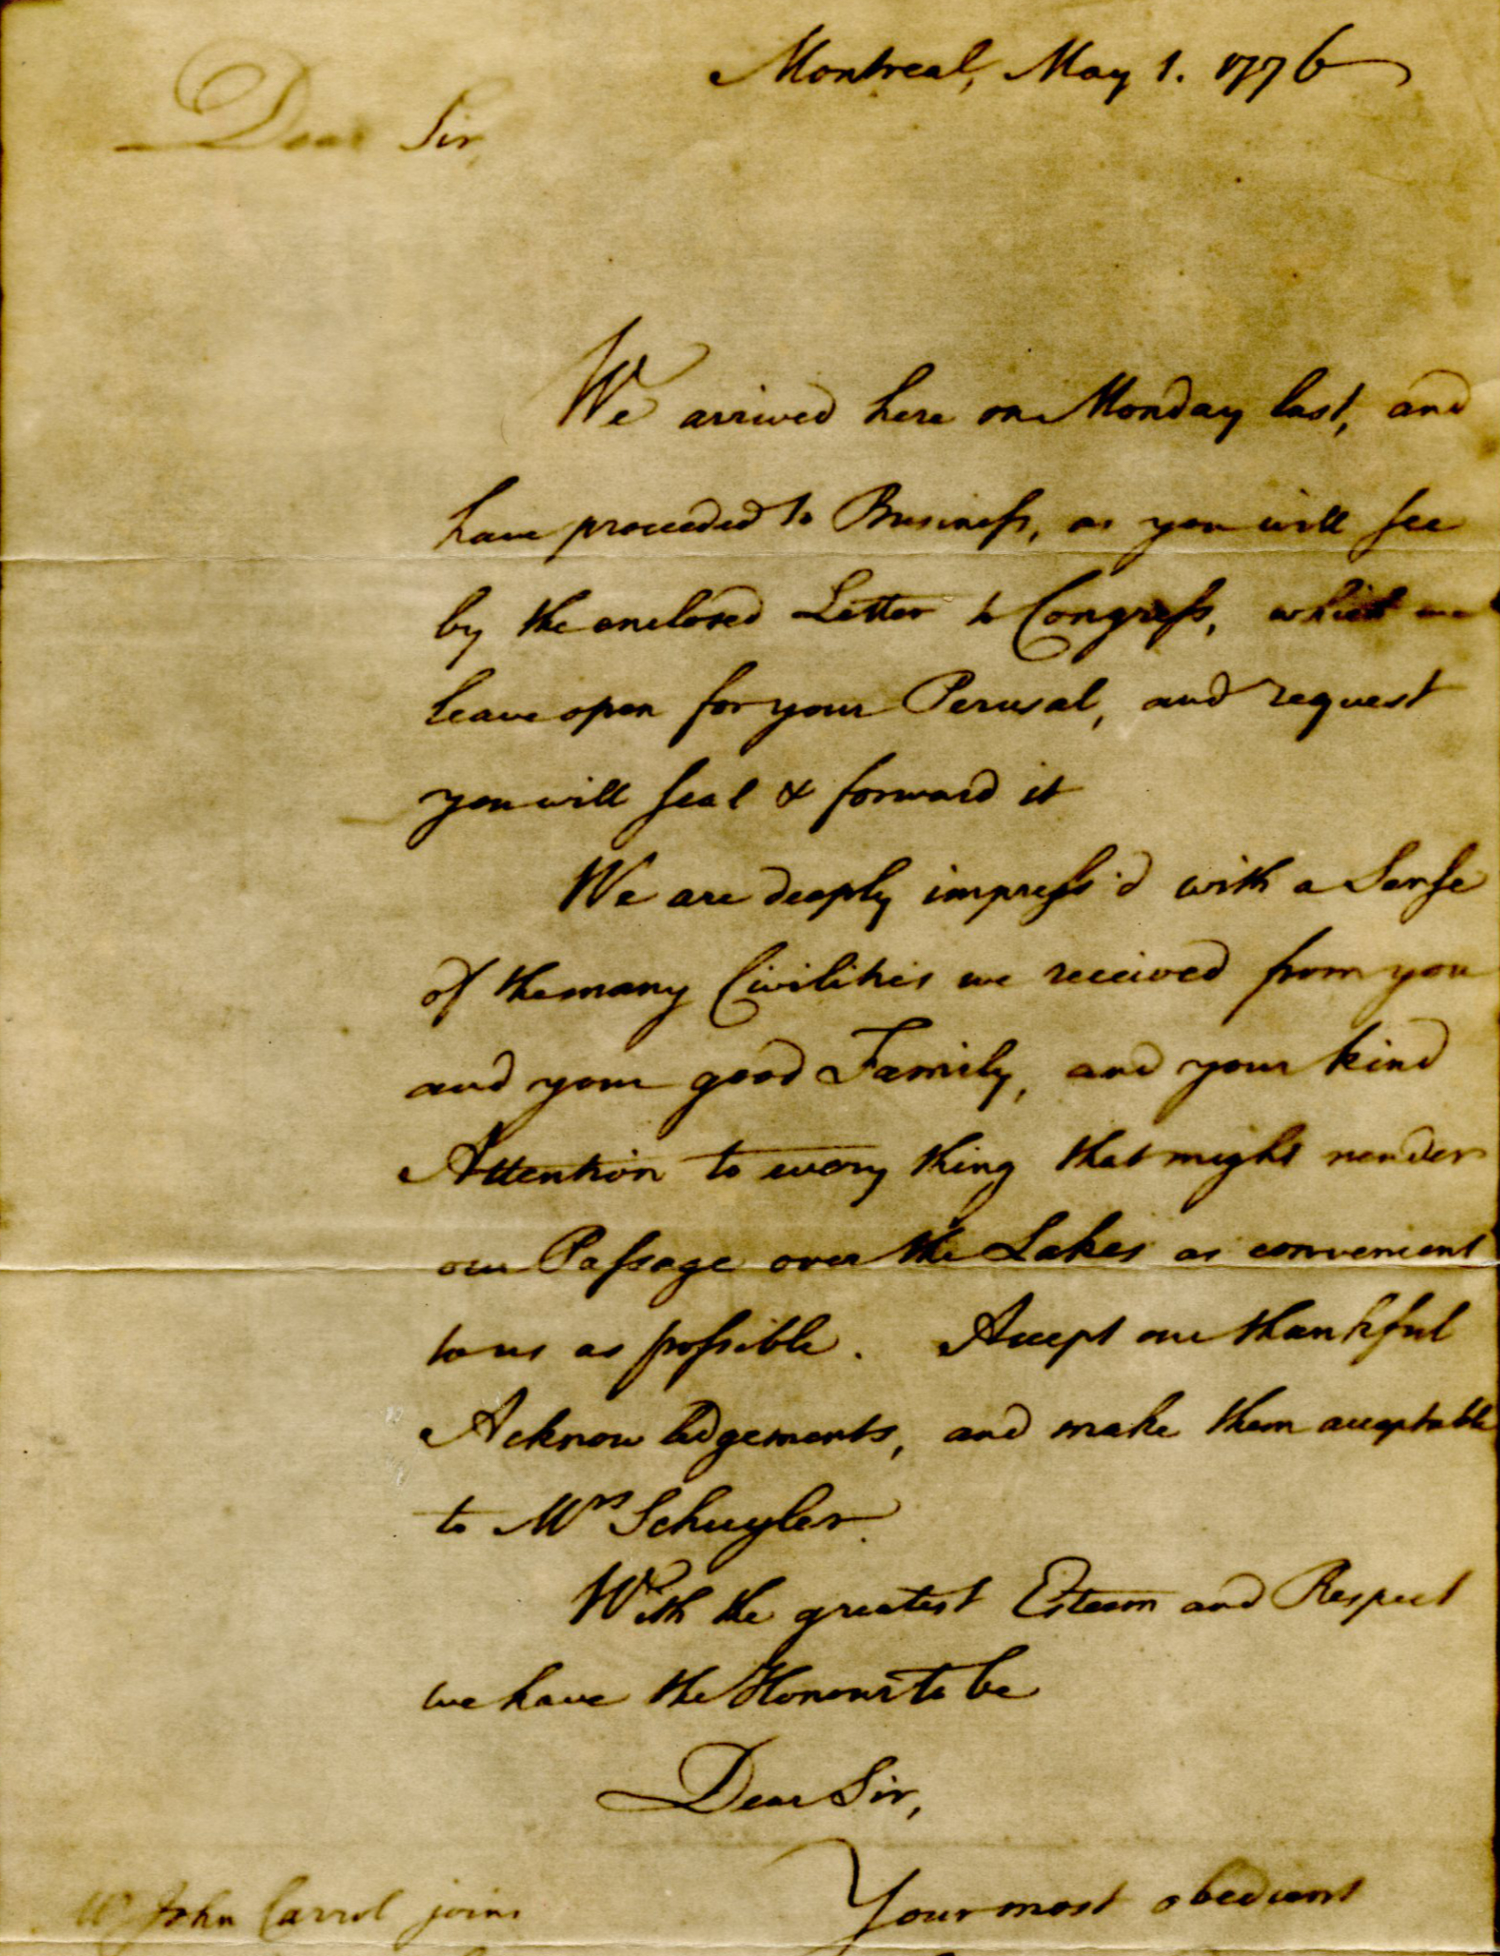 Montreal, May 1. 1776
Dear Sir,
We arrived here on Monday last, and
have proceeded to Business, as you will see
by the enclosed Letter to Congress, which we
leave open for your Perusal, and request
you will seal & forward it
We are deeply impress'd with a Sense
of the many Civilities we received from you
and your good Family, and your kind
Attention to every thing that might render
our Passage over the Lakes as convenient
to us as possible. Accept our thankful
Acknowledgements, and make them acceptable
to Mrs Schuyler.
With the greatest Esteem and Respect
we have the Honour to be
Dear Sir,
Your most obedient
Mr John Carrol joins